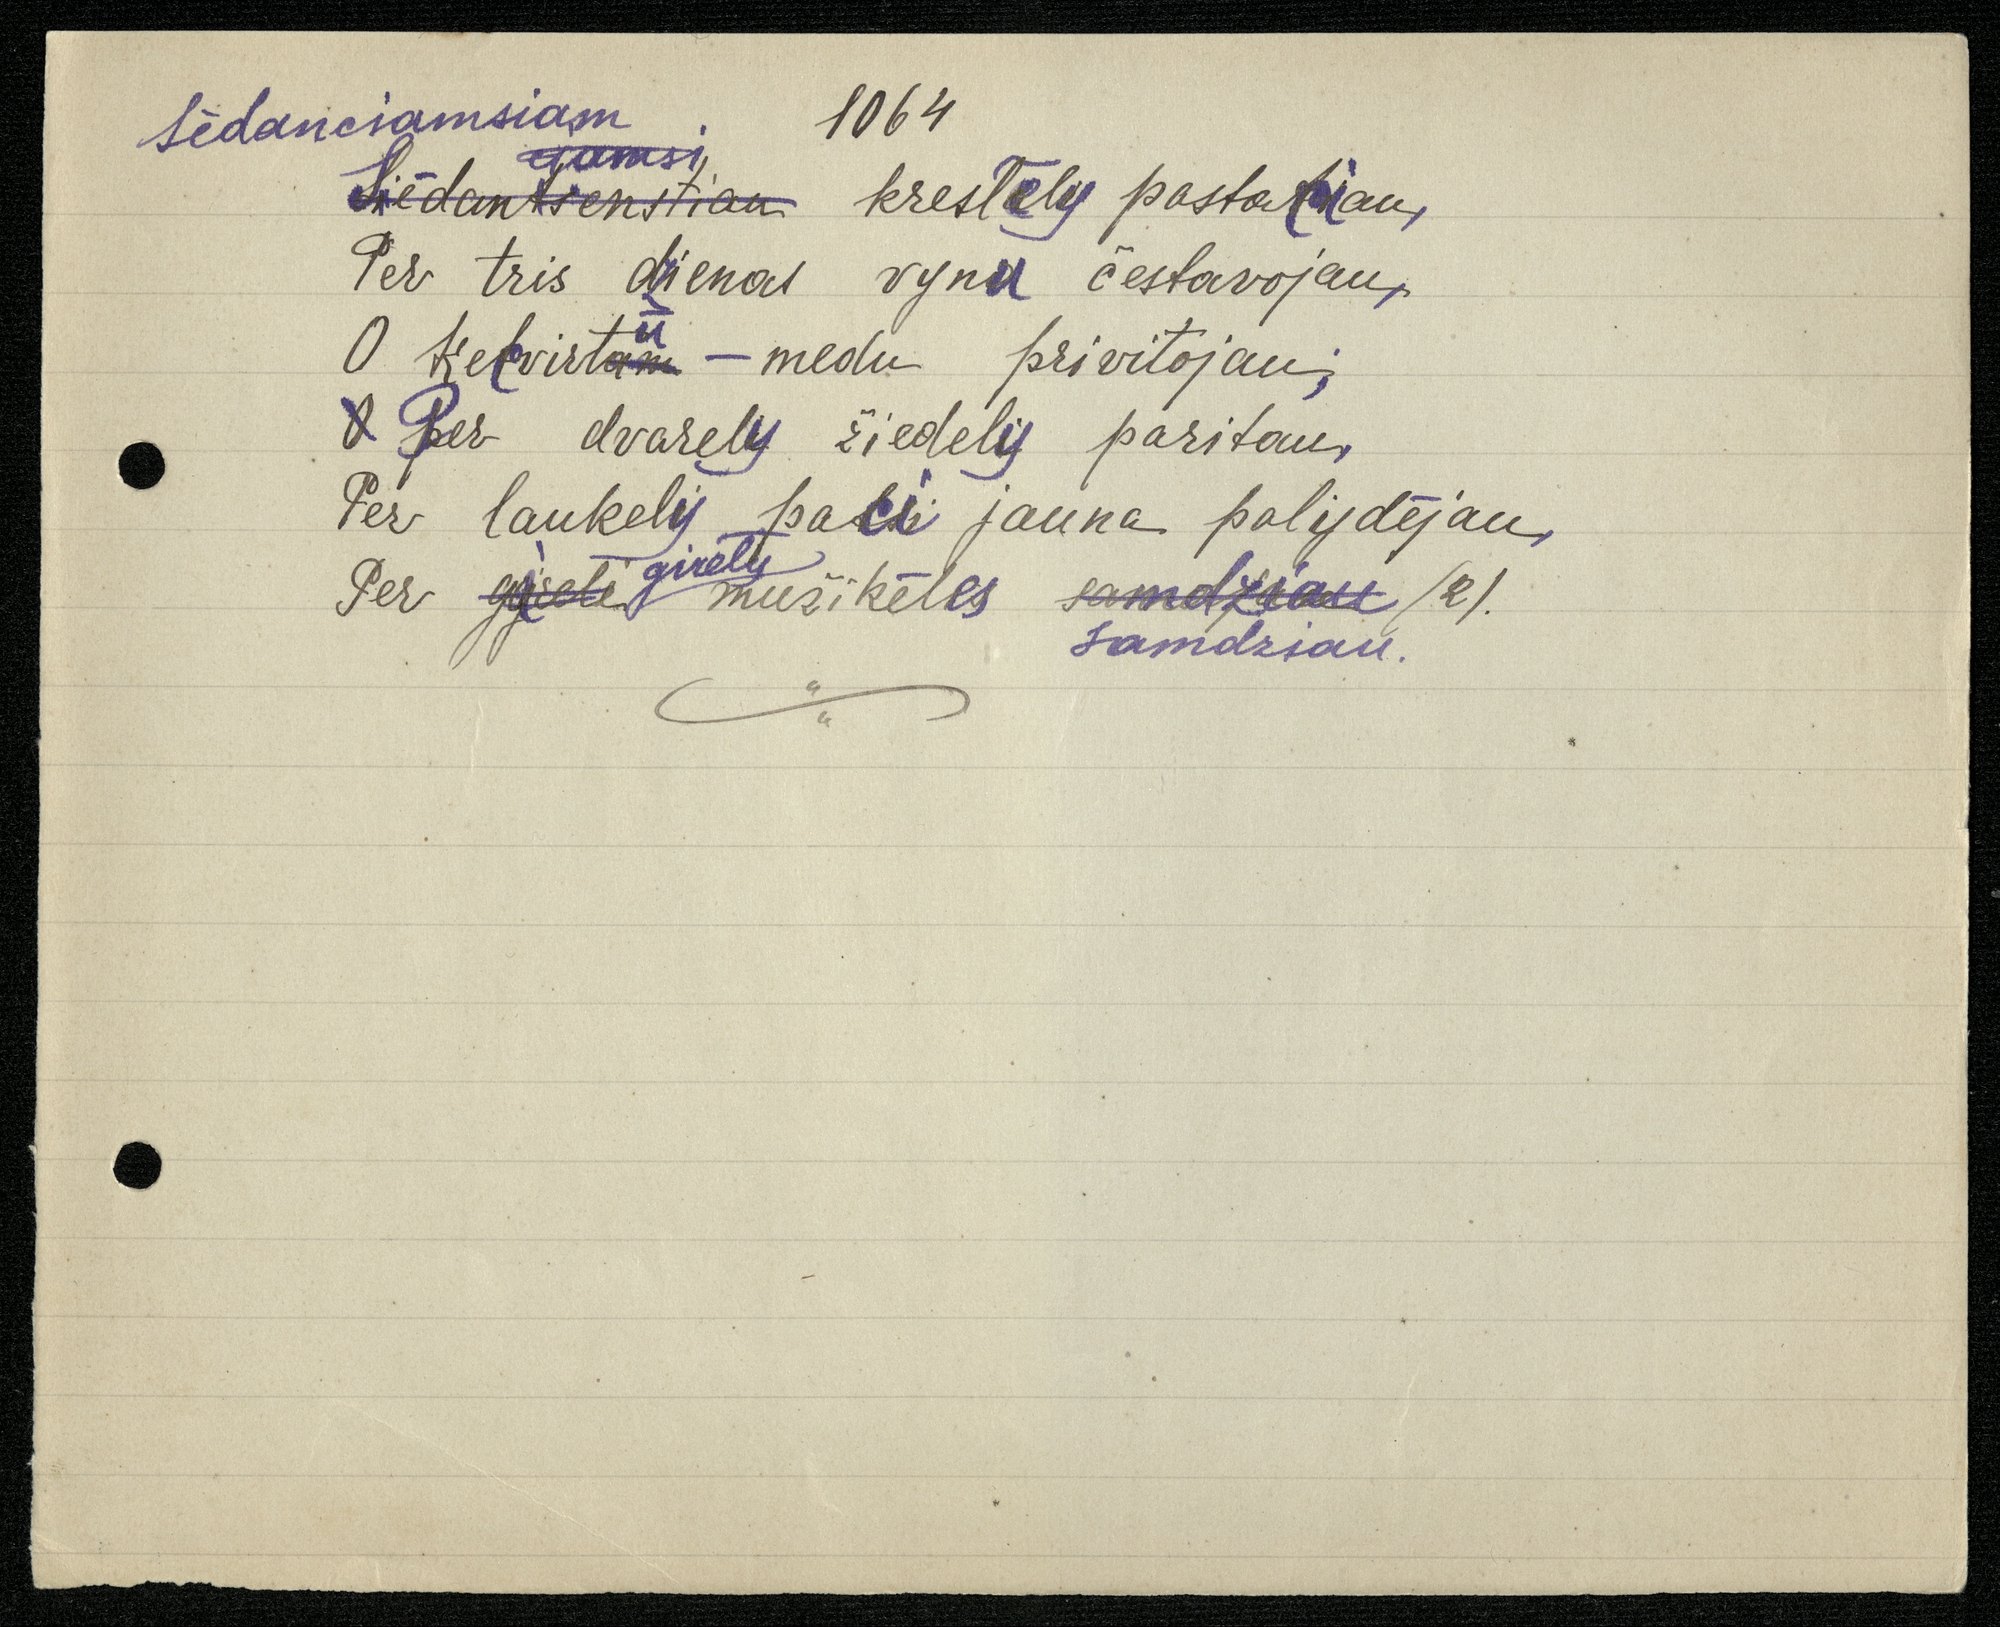 1064
sēdanciamsiam
gamsi
Siēdantsenstian krestēly pastaciau,
Per tris dienas vynu čestavojau,
O ketvirtam ū – medu privitojau;
O Per dvarely žiedely paritau,
Per laukely paci jauna palydējau,
Per girely mužikēles samdžiau /2/.
samdziau.